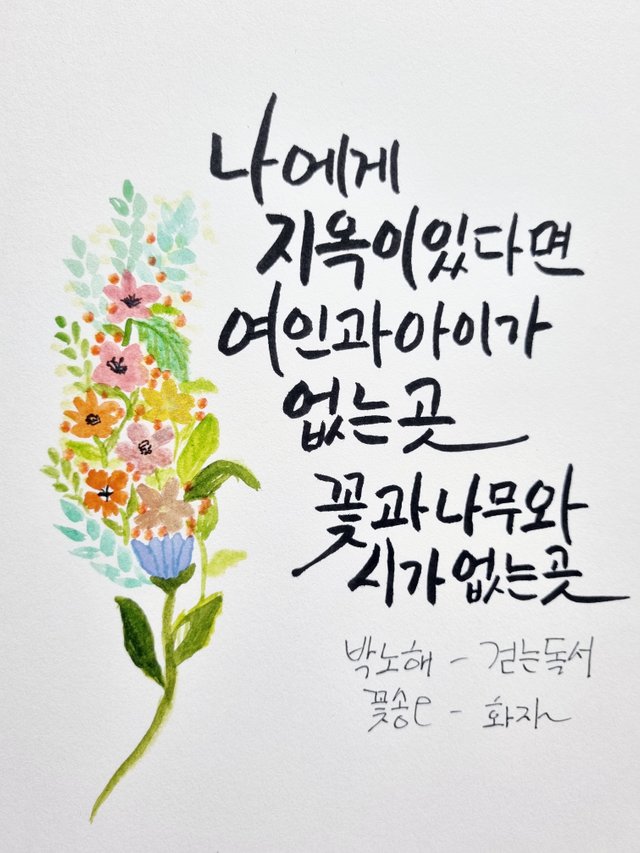 나에게
지옥이 있다면
여인과 아이가
없는 곳
꽃과 나무와
시가 없는 곳
박노해 - 걷는 독서
꽃송e - 화자